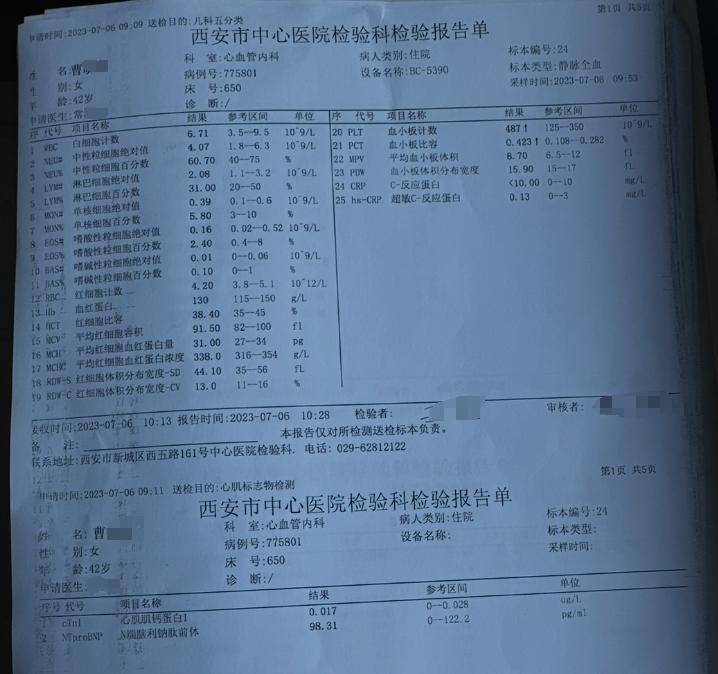 第1页 共5页
申请时间:2023-07-06 09:09 送检目的:儿科五分类
西安市中心医院检验科检验报告单
姓 名:曹
科 室:心血管内科
病人类别:住院
标本编号:24
性 别:女
病例号:775801
设备名称:BC-5390
标本类型:静脉全血
年 龄:42岁
床 号:650
采样时间:2023-07-06 09:53
申请医生:常
诊 断:/
序 代号 项目名称 结果 参考区间 单位 序 代号 项目名称 结果 参考区间 单位
1 WBC 白细胞计数 6.71 3.5--9.5 10^9/L 20 PLT 血小板计数 487↑ 125--350 10^9/L
2 NEU# 中性粒细胞绝对值 4.07 1.8--6.3 10^9/L 21 PCT 血小板比容 0.423↑ 0.108--0.282 %
3 NEU% 中性粒细胞百分数 60.70 40--75 % 22 MPV 平均血小板体积 8.70 6.5--12 fl
4 LYM# 淋巴细胞绝对值 2.08 1.1--3.2 10^9/L 23 PDW 血小板体积分布宽度 15.90 15--17 fl
5 LYM% 淋巴细胞百分数 31.00 20--50 % 24 CRP C-反应蛋白 <10.00 0--10 mg/L
6 MON# 单核细胞绝对值 0.39 0.1--0.6 10^9/L 25 hs-CRP 超敏C-反应蛋白 0.13 0--3 mg/L
7 MON% 单核细胞百分数 5.80 3--10 %
8 EOS# 嗜酸性粒细胞绝对值 0.16 0.02--0.52 10^9/L
9 EOS% 嗜酸性粒细胞百分数 2.40 0.4--8 %
10 BAS# 嗜碱性粒细胞绝对值 0.01 0--0.06 10^9/L
11 BAS% 嗜碱性粒细胞百分数 0.10 0--1 %
12 RBC 红细胞计数 4.20 3.8--5.1 10^12/L
13 Hb 血红蛋白 130 115--150 g/L
14 HCT 红细胞比容 38.40 35--45 %
15 MCV 平均红细胞容积 91.50 82--100 fl
16 MCH 平均红细胞血红蛋白量 31.00 27--34 pg
17 MCHC 平均红细胞血红蛋白浓度 338.0 316--354 g/L
18 RDW-S 红细胞体积分布宽度-SD 44.10 35--56 fL
19 RDW-C 红细胞体积分布宽度-CV 13.0 11--16 %
接收时间:2023-07-06 10:13 报告时间:2023-07-06 10:28 检验者: 审核者:
备 注: 本报告仅对所检测送检标本负责。
联系地址:西安市新城区西五路161号中心医院检验科. 电话: 029-62812122
第1页 共5页
申请时间:2023-07-06 09:11 送检目的:心肌标志物检测
西安市中心医院检验科检验报告单
姓 名:曹
科 室:心血管内科
病人类别:住院
标本编号:24
性 别:女
病例号:775801
设备名称:
标本类型:
年 龄:42岁
床 号:650
采样时间:
申请医生:
诊 断:/
序号 代号 项目名称 结果 参考区间 单位
1 cTnI 心肌肌钙蛋白I 0.017 0--0.028 ug/L
2 NTproBNP N端脑利钠肽前体 98.31 0--122.2 pg/ml